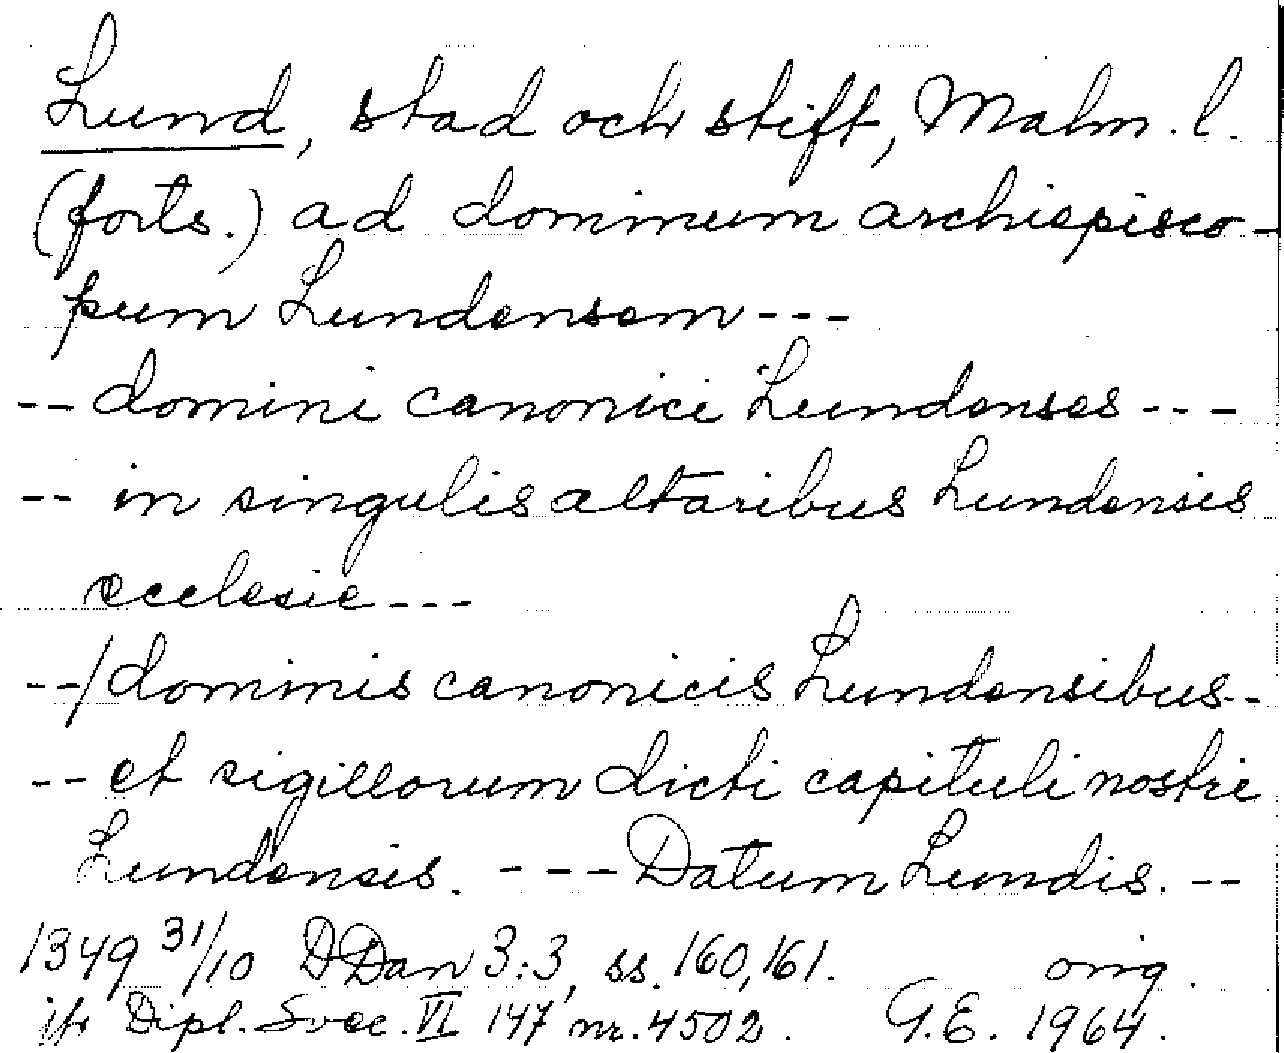 Lund, stad och stift, Malm. l.
(forts.) ad dominum archiepisco-
pum Lundensem---
-- domini canonici Lundenses---
-- in singulis altaribus Lundensis
ecclesie---
--/dominis canonicis Lundensibus--
-- et sigillorum dicti capituli nostri
Lundensis. --- Datum Lundis. --
1349 31/10 DDan 3:3, ss. 160,161. orig.
jfr Dipl. Svec. VI 147 nr. 4502. G.E. 1964.